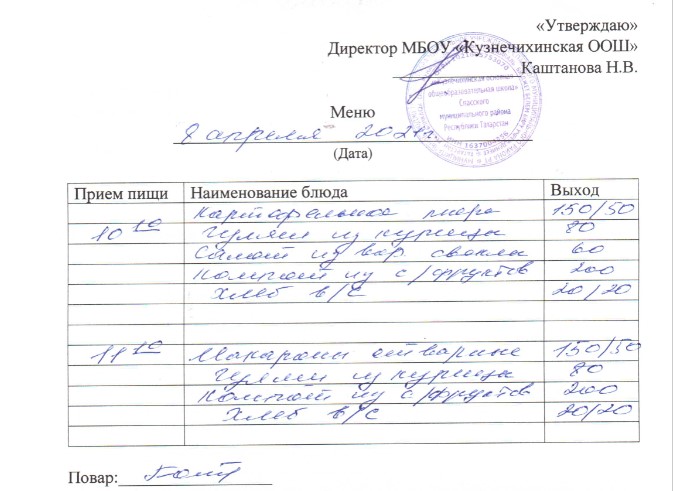 «Утверждаю»
Директор МБОУ «Кузнечихинская ООШ»
Каштанова Н.В.
Меню
8 апреля 2021 г.
(Дата)
Прием пищи Наименование блюда Выход
Картофельное пюре 150/50
10 10 Гуляш из курицы 80
Салат из вар свеклы 60
Компот из с/фруктов 200
Хлеб в/с 20/20
11 10 Макароны отварные 150/50
Гуляш из курицы 80
Компот из с/фруктов 200
Хлеб в/с 20/20
Повар:
общеобразовательная школа»
Спасского
муниципального района
Республики Татарстан